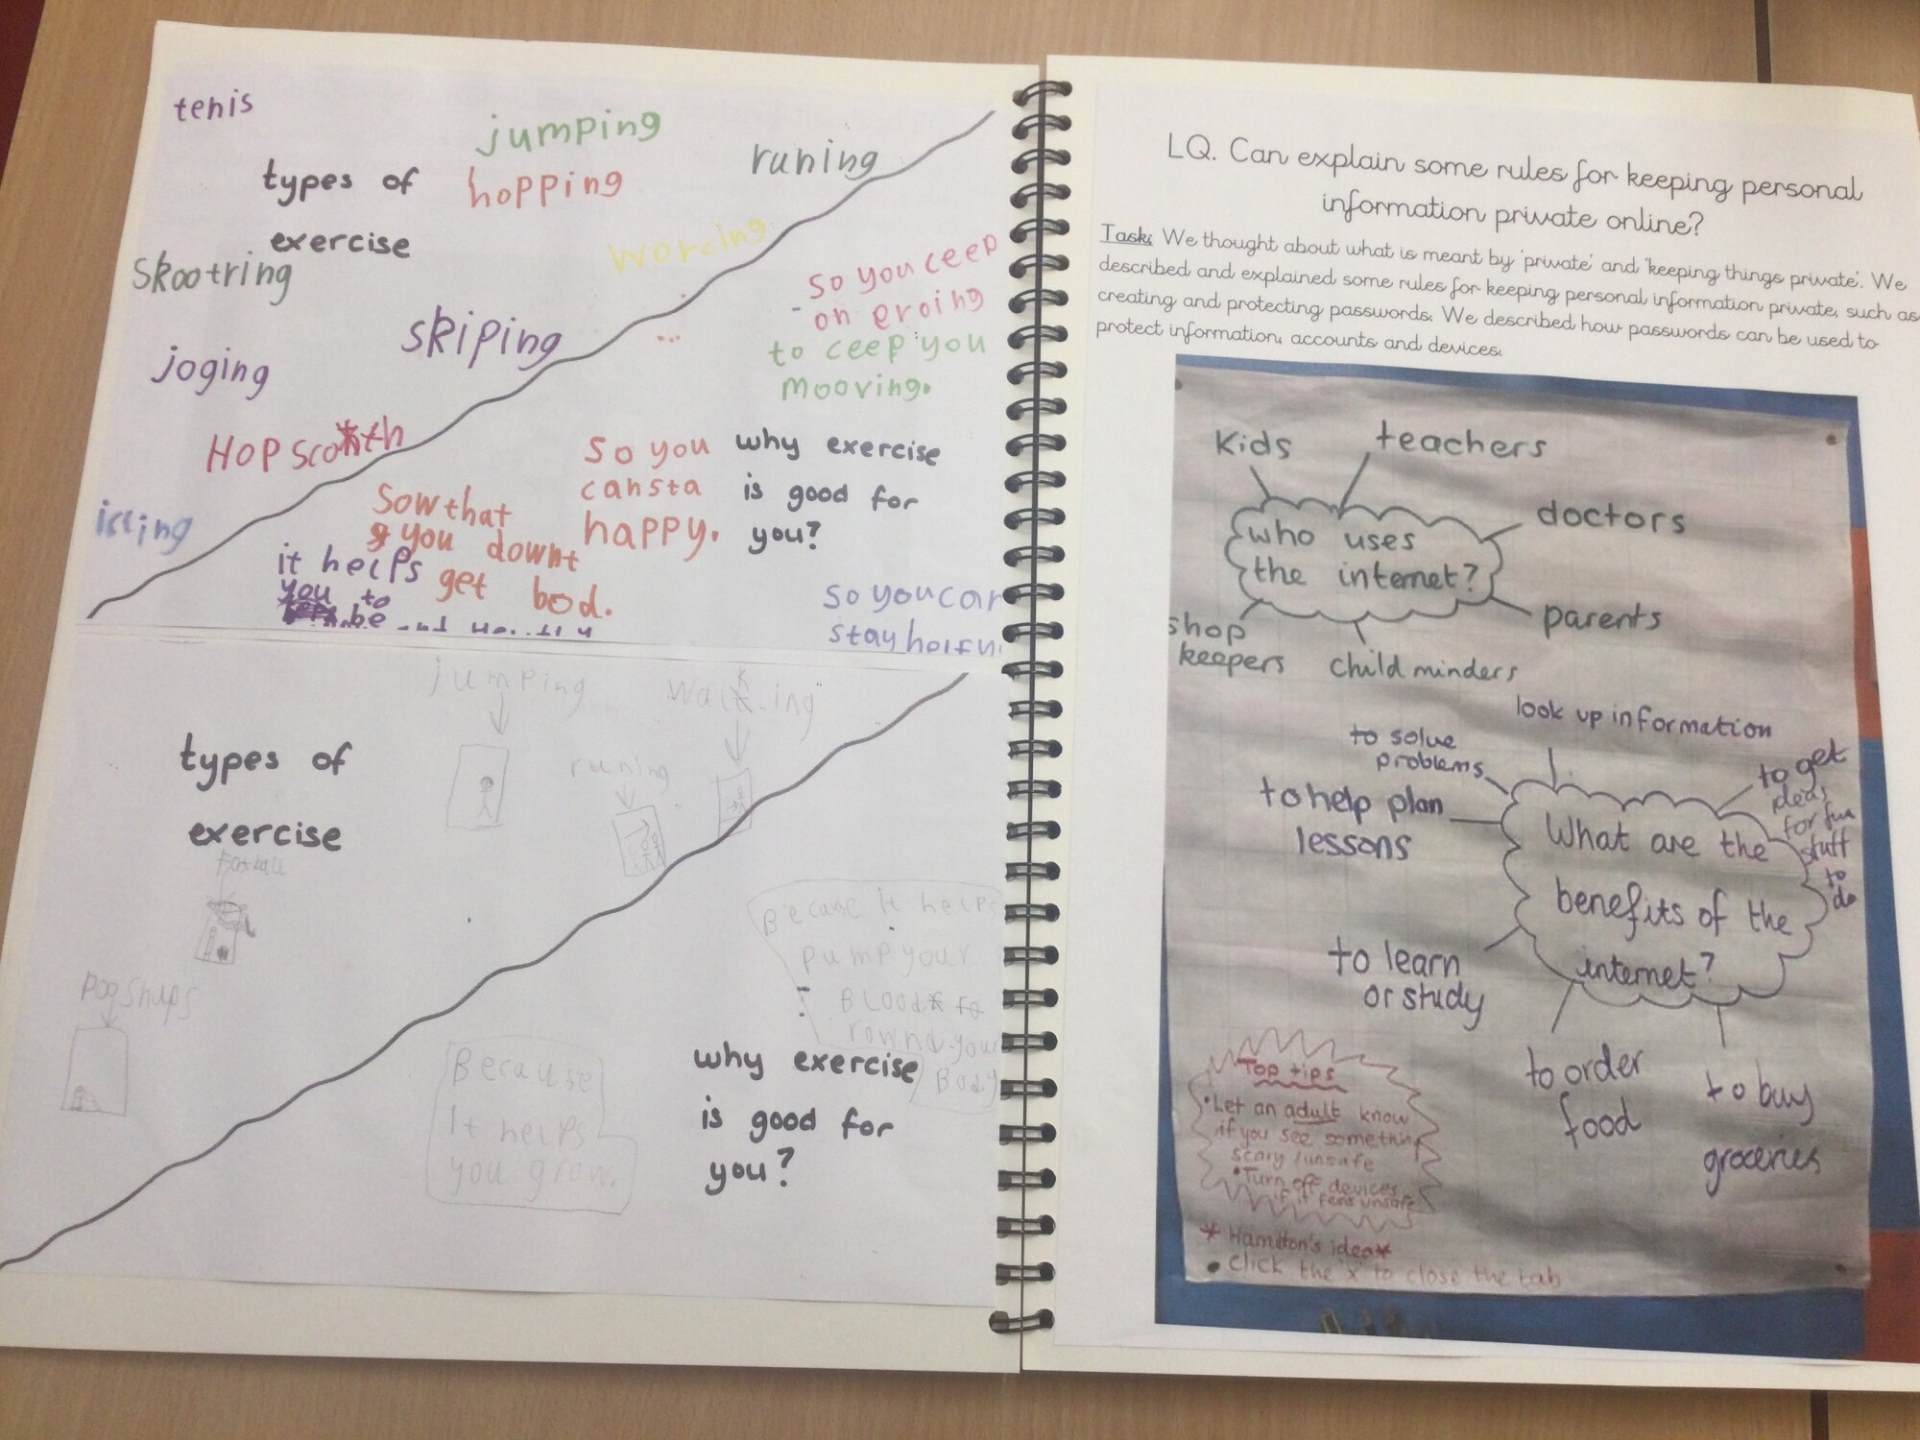 tenis
jumping
runing
types of
exercise
hopping
worcing
Skootring
skiping
joging
Hop scotth
so you ceep
on eroing
to ceep you
mooving.
So you
can sta
happy.
why exercise
is good for
you?
Sow that
you downt
get bod.
it helps
you to
be
so you can
stay
jumping
walking
runing
types of
exercise
football
pogshups
Because it helps
pump your
Blood to
rownd your
Body
Because
It helps
you grow.
why exercise
is good for
you?
LQ. Can explain some rules for keeping personal
information private online?
Task: We thought about what is meant by 'private' and 'keeping things private'. We
described and explained some rules for keeping personal information private, such as
creating and protecting passwords. We described how passwords can be used to
protect information, accounts and devices.
Kids
teachers
doctors
who uses
the internet?
parents
shop
keepers
child minders
look up information
to solve
problems
to get
ideas
for fun
stuff
to
do
to help plan
lessons
What are the
benefits of the
internet?
to learn
or study
to order
food
to buy
groceries
Top tips
• Let an adult know
if you see something
scary/unsafe
• Turn off devices
if it feels unsafe
* Hamilton's idea*
• click the 'x' to close the tab